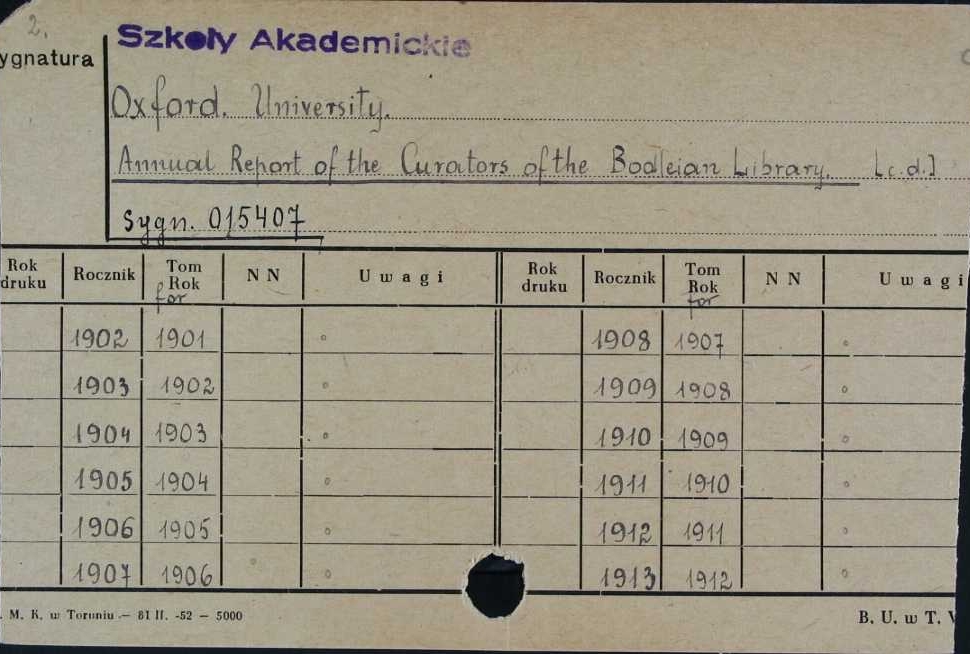 2.
Szkoły Akademickie
ygnatura
Oxford. University.
Annual Report of the Curators of the Bodleian Library. [c.d.]
Sygn. 015407
Rok druku Rocznik Tom Rok for N N Uwagi Rok druku Rocznik Tom Rok for N N Uwagi
1902 1901 1908 1907
1903 1902 1909 1908
1904 1903 1910 1909
1905 1904 1911 1910
1906 1905 1912 1911
1907 1906 1913 1912
. M. K. w Toruniu — 81 II. -52 — 5000 B. U. w T.